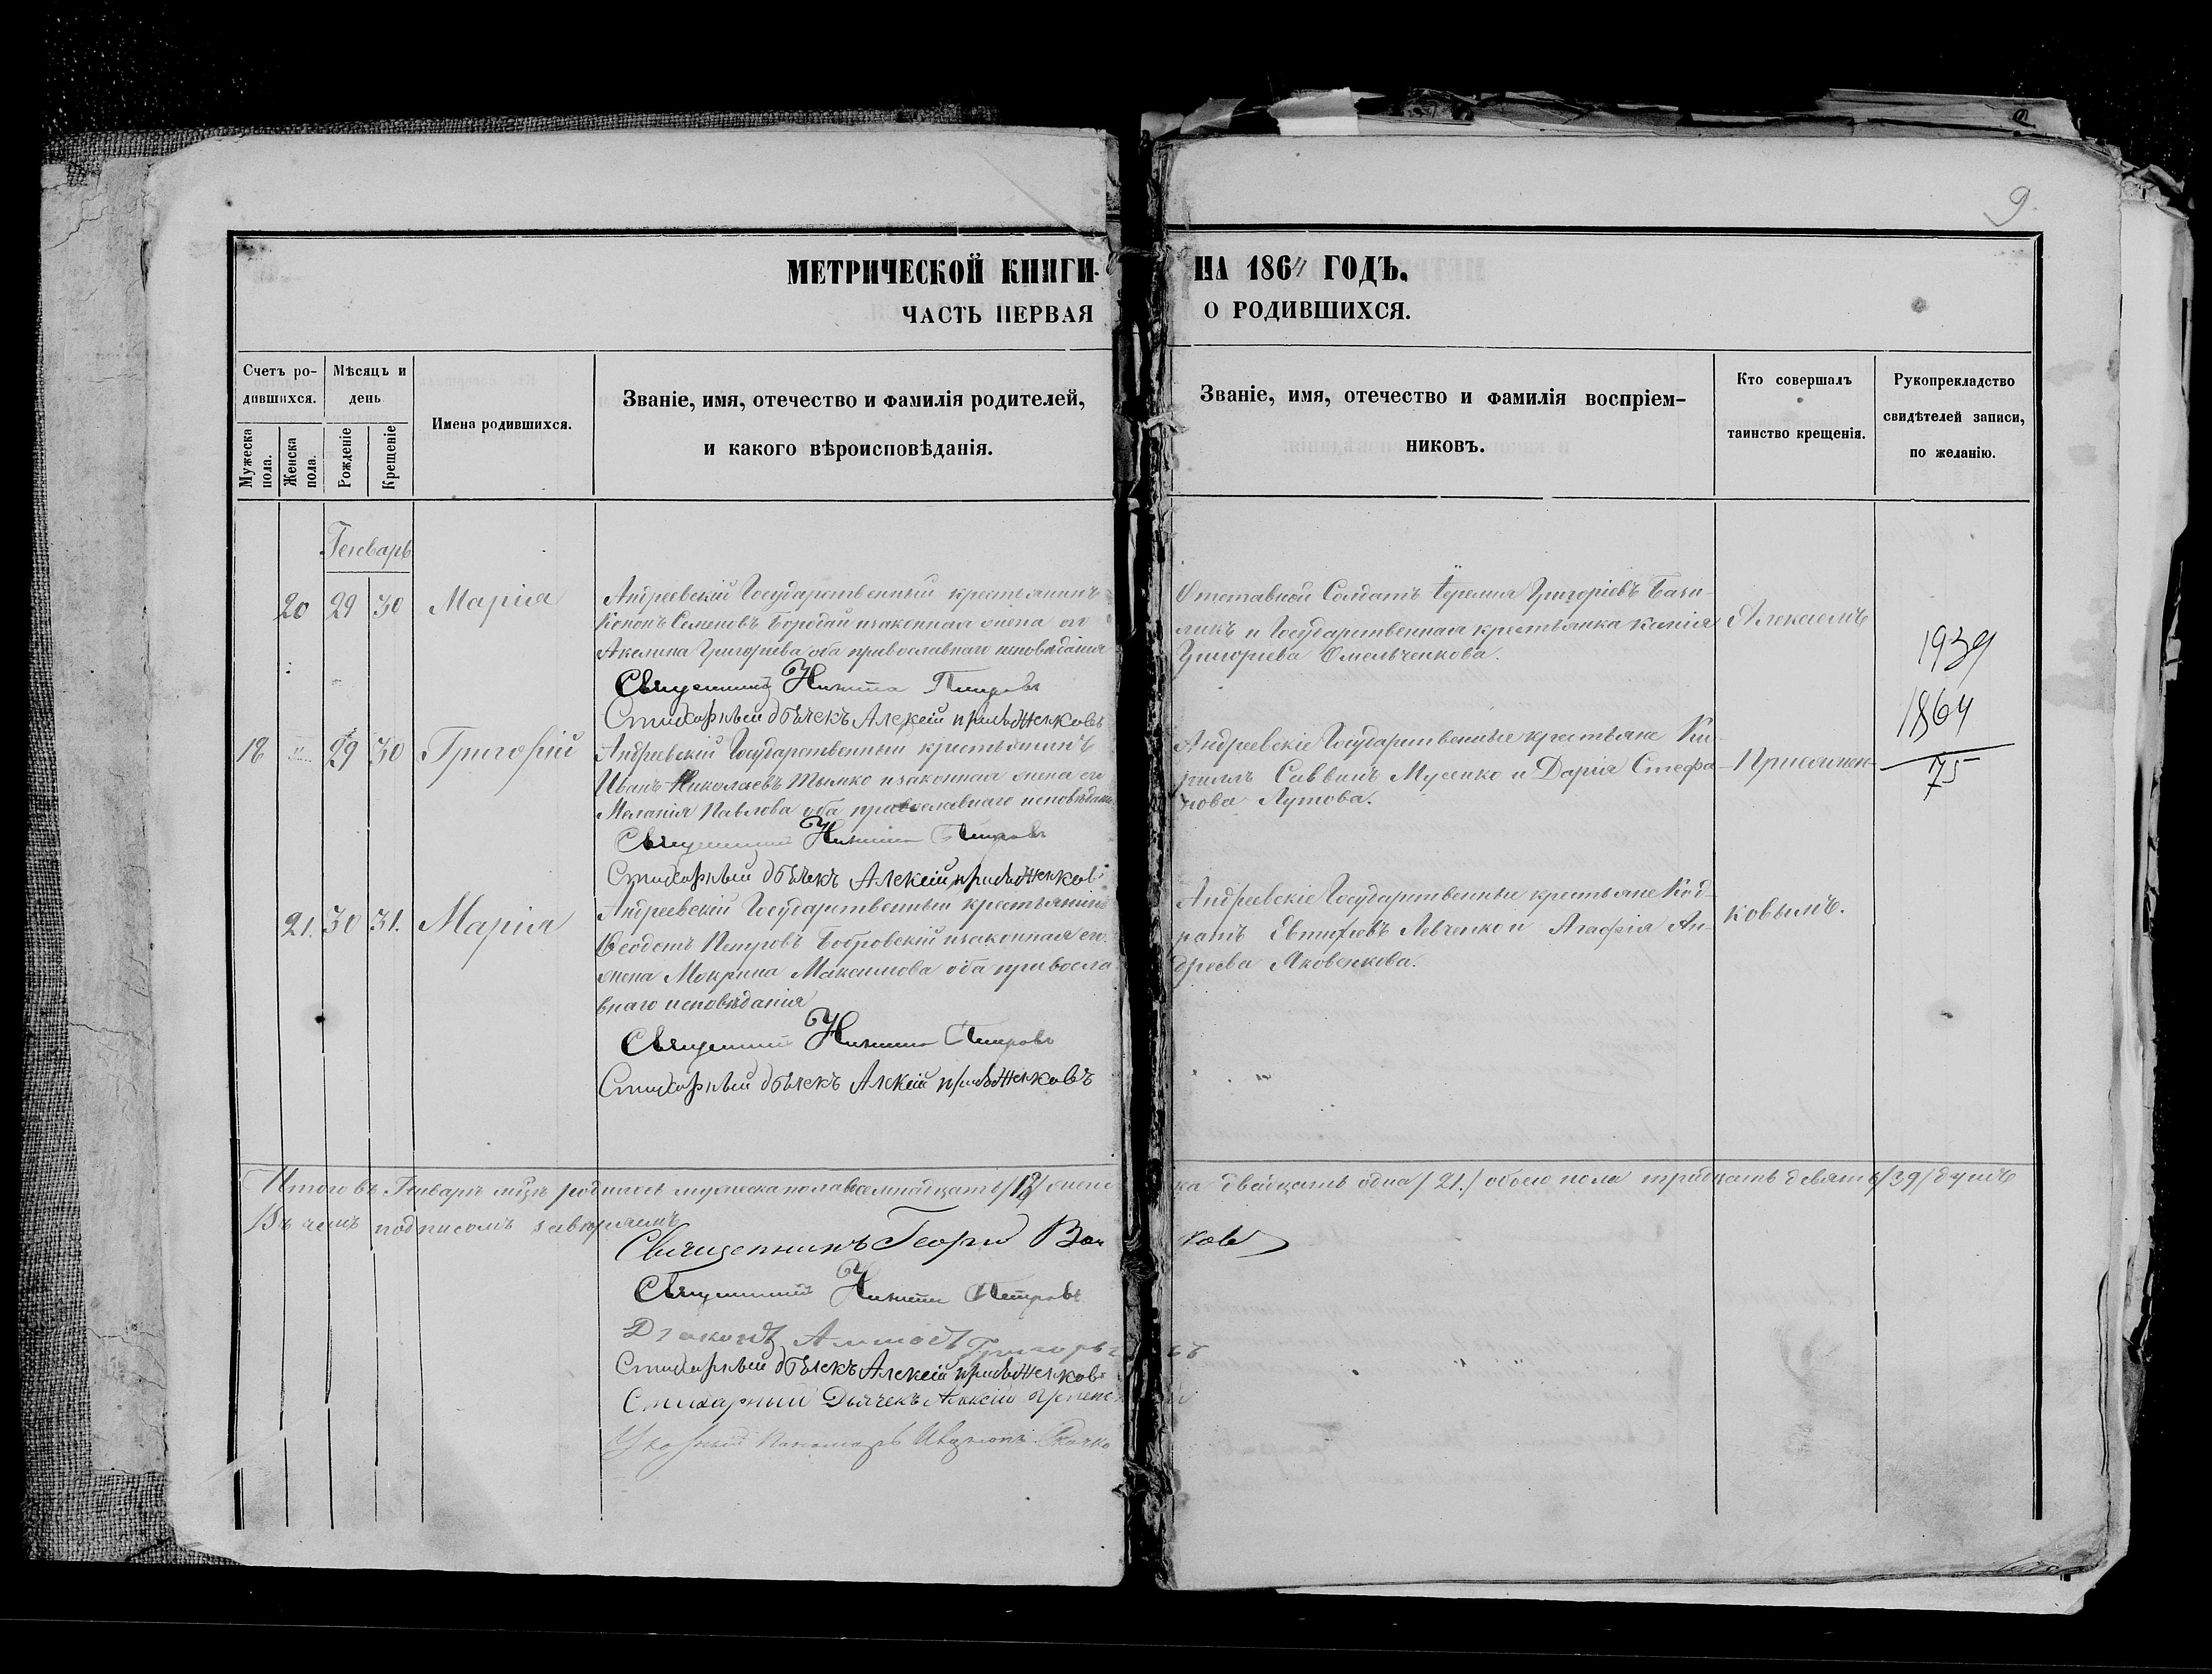 9
МЕТРИЧЕСКОЙ КНИГИ НА 1864 ГОДЪ.
ЧАСТЬ ПЕРВАЯ О РОДИВШИХСЯ.
Счетъ родившихся.
Мужеска пола.
Женска пола.
Мѣсяцъ и день
Рожденіе
Крещеніе
Имена родившихся.
Званіе, имя, отечество и фамилія родителей,
и какого вѣроисповѣданія.
Званіе, имя, отечество и фамилія воспріем-
никовъ.
Кто совершалъ
таинство крещенія.
Рукоприкладство
свидѣтелей записи,
по желанію.
Генварь
20 29 30 Марія
Андреевскій Государственный крестьянинъ
Кононъ Семеновъ Бородай и законная жена его
Акелина Григорьева оба православнаго исповѣданія
Священникъ Никита Петровъ
Стихарный дьячекъ Алексій
Отставной Солдатъ Ѓеремия Григоріевъ Бази-
ликъ и Государственная крестьянка Ксенія
Григорьева Омельченкова.
18 29 30 Григорій
Андреевскій Государственный крестьянинъ
Иванъ Николаевъ Тымко и законная жена его
Меланія Павлова оба православнаго исповѣданія
Священникъ Никита Петровъ
Стихарный дьячекъ Алексій
Андреевскіе Государственные крестьяне Ки-
риллъ Саввинъ Мусенко и Дарія Стефа-
нова Лутова.
1939
1864
75
21. 30 31. Марія
Андреевскій Государственный крестьянинъ
Ѳеодотъ Петровъ Бобровскій и законная его
жена Мокрина Максимова оба правосла-
внаго исповѣданія
Священникъ Никита Петровъ
Стихарный дьячекъ Алексій
Андреевскіе Государственные крестьяне Код-
ратъ Евтифіевъ Левченко и Агафія Ан-
дреева Яковенкова.
Итого въ Генварѣ мцѣ родилось мужеска пола восемнадцать /18/ женска двадцать одна /21./ обоего пола тридцать девять /39/ душъ
Въ чемъ подписомъ заверяемъ
Священникъ Георгій
Священникъ Никита Петровъ
Діаконъ
Стихарный дьячекъ Алексій
Стихарный Дьячекъ Алексій
Пономарь